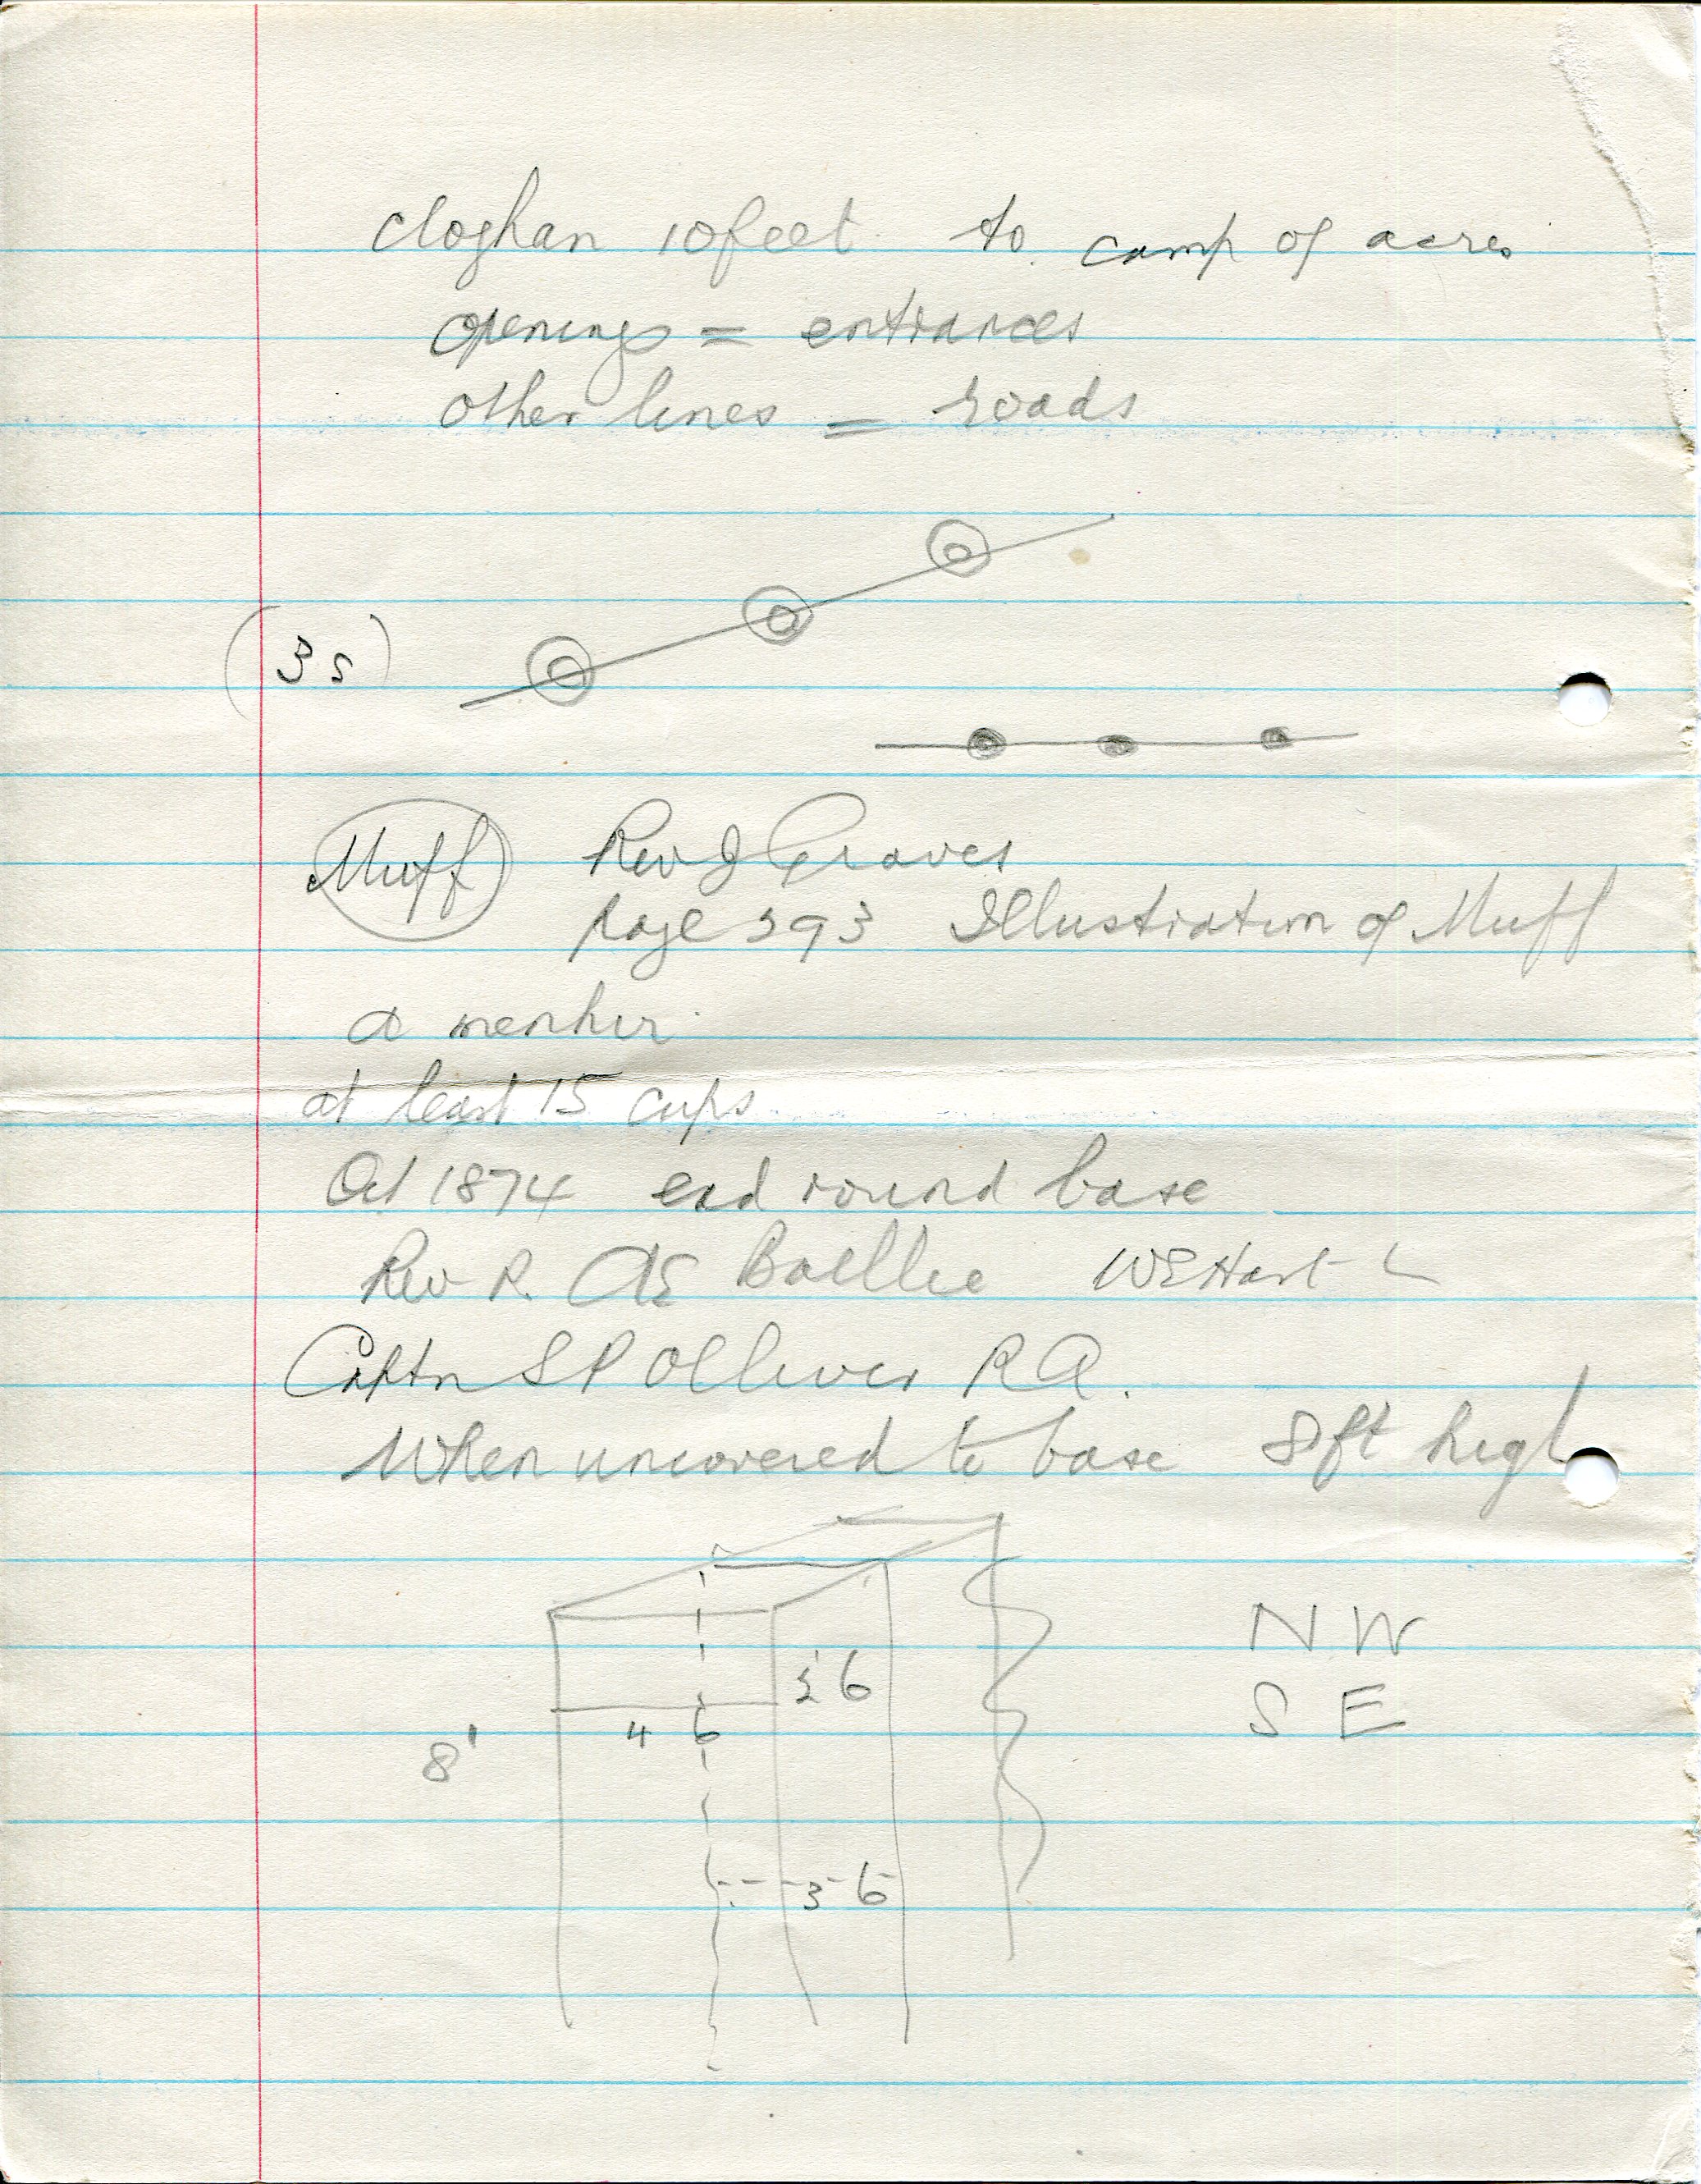 cloghan 10 feet to camp of acres
openings = entrances
other lines = roads
(3s)
Muff Rev J Graves
page 293 Illustration of Muff
a menhir
at least 15 cups
Oct 1874 end round base
Rev R. AE Baillie WE Hart
Captn SP Olliver RA.
When uncovered to base 8ft high
N W
S E
6
4 6
8'
3 6